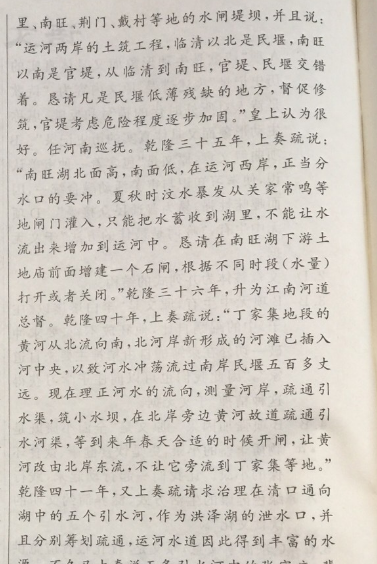 里、南旺、荆门、戴村等地的水闸堤坝,并且说:
“运河两岸的土筑工程,临清以北是民堰,南旺
以南是官堤,从临清到南旺,官堤、民堰交错
着。恳请凡是民堰低薄残缺的地方,督促修
筑,官堤考虑危险程度逐步加固。”皇上认为很
好。任河南巡抚。乾隆三十五年,上奏疏说:
“南旺湖北面高,南面低,在运河西岸,正当分
水口的要冲。夏秋时汶水暴发从关家常鸣等
地闸门灌入,只能把水蓄收到湖里,不能让水
流出来增加到运河中。恳请在南旺湖下游土
地庙前面增建一个石闸,根据不同时段(水量)
打开或者关闭。”乾隆三十六年,升为江南河道
总督。乾隆四十年,上奏疏说:“丁家集地段的
黄河从北流向南,北河岸新形成的河滩已插入
河中央,以致河水冲荡流过南岸民堰五百多丈
远。现在理正河水的流向,测量河岸,疏通引
水渠,筑小水坝,在北岸旁边黄河故道疏通引
水河渠,等到来年春天合适的时候开闸,让黄
河改由北岸东流,不让它旁流到丁家集等地。”
乾隆四十一年,又上奏疏请求治理在清口通向
湖中的五个引水河,作为洪泽湖的泄水口,并
且分别筹划疏通,运河水道因此得到丰富的水